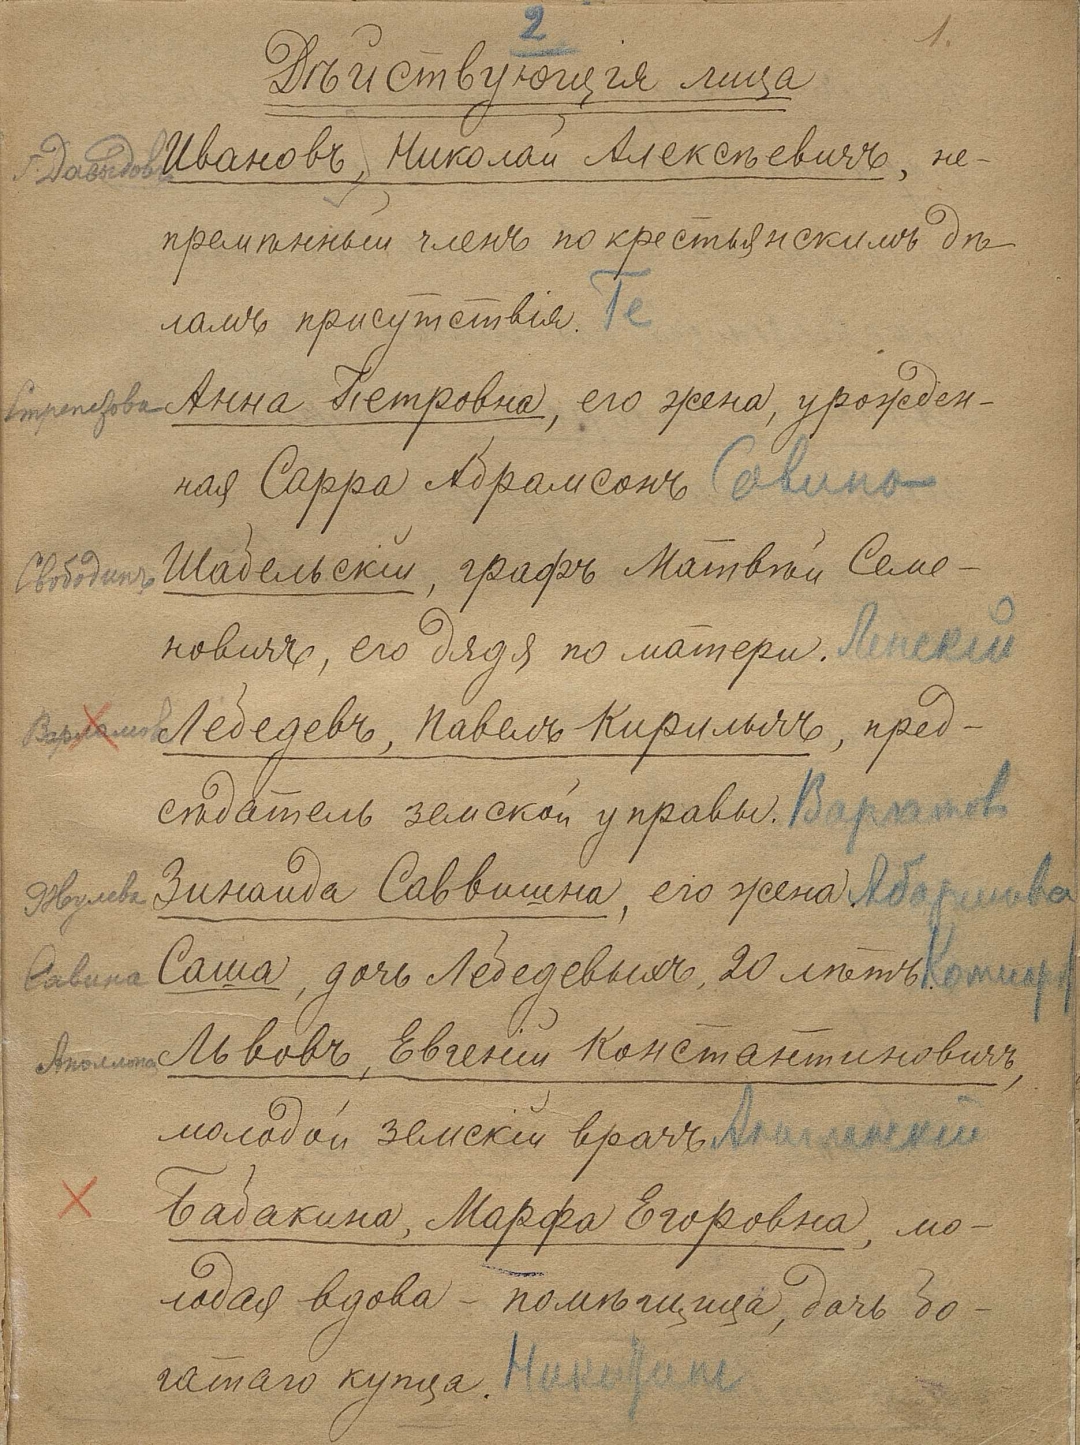 2
1.
Дѣйствующія лица
Г. Давыдовъ Ивановъ, Николай Алексѣевичъ, не-
премѣнный членъ по крестьянскимъ дѣ
ламъ присутствія. Ге
Стрепетова Анна Петровна, его жена, урожден-
ная Сарра Абрамсонъ Савина
Свободинъ Шабельскій, графъ Матвѣй Семе-
новичъ, его дядя по матери. Ленскій
Варламовъ Лебедевъ, Павелъ Кирилычъ, пред-
сѣдатель земской управы. Варламов
Жулева Зинаида Саввишна, его жена. Абаринова
Савина Саша, дочь Лебедевыхъ, 20 лѣтъ.
Львовъ, Евгеній Константиновичъ,
молодой земскій врачъ
Бабакина, Марфа Егоровна, мо-
лодая вдова - помѣщица, дочь бо-
гатаго купца.